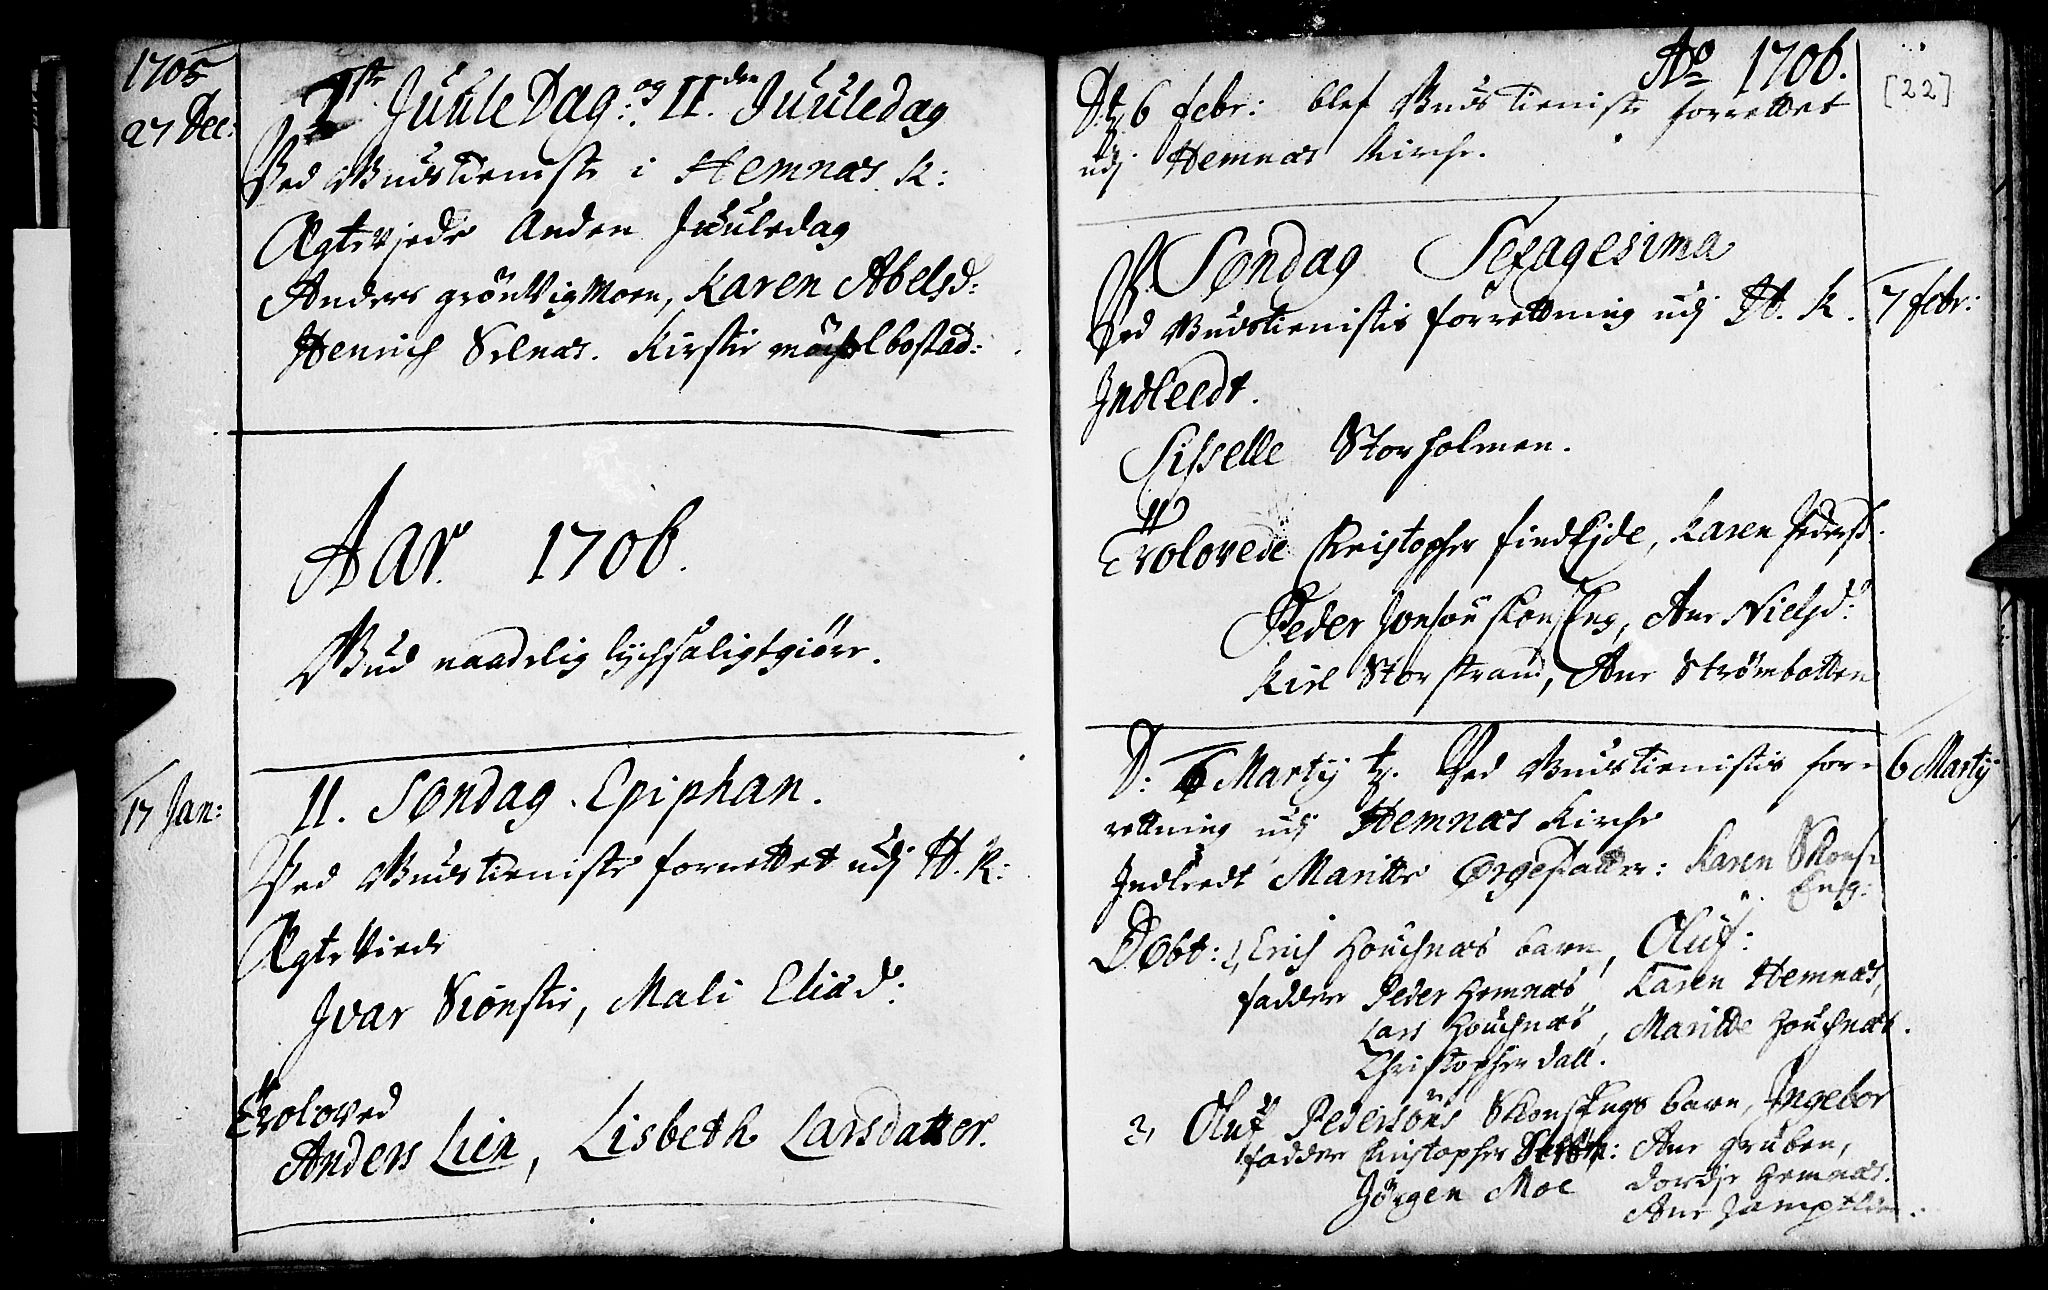 1705
27 Dec:
1ste Juule Dag: og II.den Juuledag
Ved Gudstieniste i Hemnæs K:
Ægteviede Anden Juuledag
Anders grönVigMoen, Karen Abelsd:
Henrich Kirstie
Aar 1706.
Gud naadelig lychsaligtgiöre.
17 Jan:
II. Søndag Epiphan.
Ved Gudstieniste forrettet udj H. K:
ÆgteViede
Jvar, Mali Eliæd:
Troloved
Anders Lien, Lisbeth Larsdatter.
Ao 1706.
[22]
D. 6 febr: blef Gudstieniste forrettet
udj Hemnæs Kirche.
Søndag Sexagesima
Ved Gudstienistis forrettning udj H. K.
7 febr:
Jndleedt.
Sisselle Storholmen.
Trolovede Christopher findEjde, Karen Pedersd.
Peder Jonsön, Ane Nielsd:
Kiel Storstrand, Ane Strømbotten
D: 6 Martij Ved Gudstienistis for-
6 Martij
rettning udj Hemnæs Kirche
Jndleedt Maritte: Karen Skons-
Eng:
Døbt: 1, Erich Houchnæs barn, Oluf:
faddere Peder Hemnæs, Karen Hemnæs,
Lars Houchnæs, Maritte Houchnæs.
Christopher dall.
2, Oluf Pedersöns SkonsEngs barn, Jngebor
faddere Christopher Ane gruben,
Jörgen Moe dordje Hemnæs.
Ane